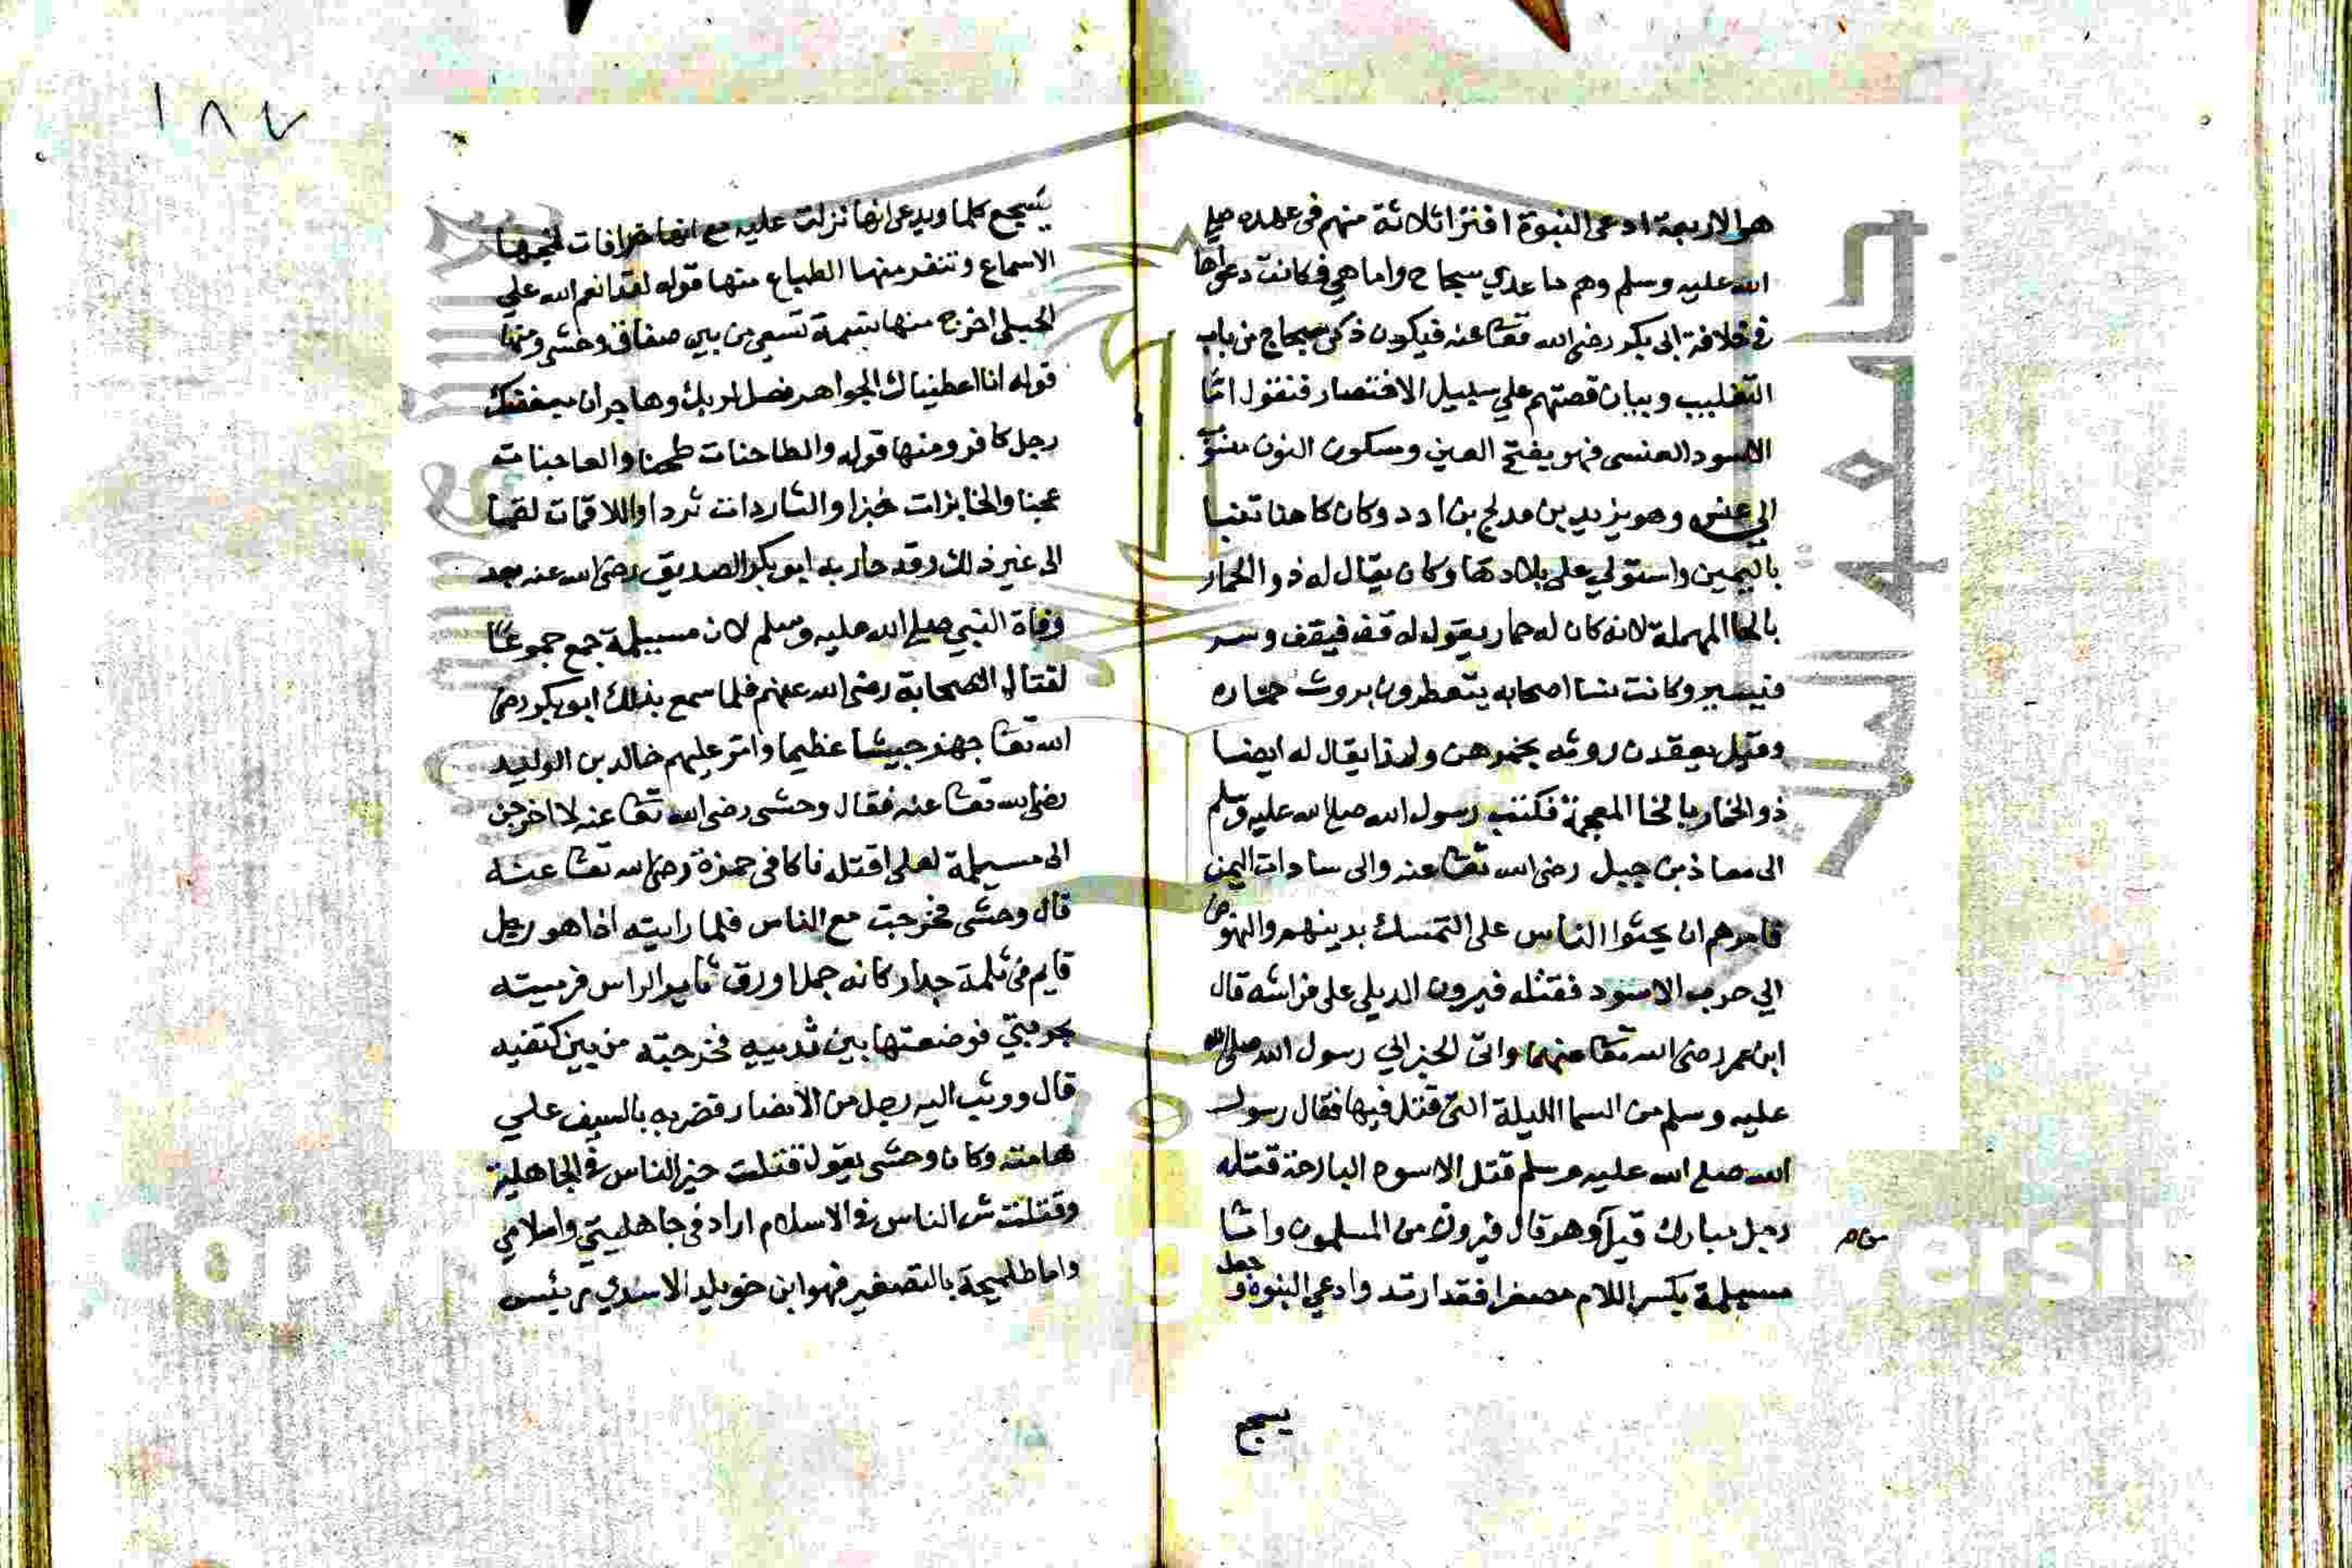 هولاء الاربعة ادعى النبوة افتراء ثلاثة منهم فى عهده صلى
الله عليه وسلم وهم ما عدي سجاح واما هي فكانت دعواها
في خلافة ابى بكر رضى الله تعا عنه فيكون ذكر سجاح من باب
التغليب وبيان قصتهم علي سبيل الاختصار فنقول اما
الاسود العنسى فهو بفتح العين وسكون النون منسوب
الي عنس وهو يزيد بن مدلج بن ادد وكان كاهنا تنبا
باليمين واستولي على بلادها وكان يقال له ذو الحمار
بالحا المهملة لانه كان له حمار يقول له قف فيقف وسر
فيسير وكانت نسا اصحابه يتعطرون بروث حماره
وقيل يعقدن روثه بخمرهن ولهذا يقال له ايضا
ذو الخمار بالخا المعجمة فكتب رسول الله صلى الله عليه وسلم
الى معاذ بن جبل رضى الله تعا عنه والى سادات اليمن
فامرهم ان يحثوا الناس على التمسك بدينهم والنهوض
الي حرب الاسود فقتله فيرون الديلى على فراشه قال
ابن عمر رضى الله تعا عنهما واتى الخبر الي رسول الله صلى الله
عليه وسلم من السما الليلة التى قتل فيها فقال رسول
الله صلى الله عليه وسلم قتل الاسود البارحة قتله
رجل مبارك قيل وهو قال فيرون من المسلمون واما
مسيلمة بكسر اللام مصغرا فقد ارتد وادعي النبوة وجعل
يسجع
١٨٧
يسجع كلما ويدعى انها نزلت عليه مع انها خرافات تمجها
الاسماع وتنفر منها الطباع منها قوله لقد انعم الله علي
الحبلى اخرج منها نسمة تسعى من بين صفاق وحشى ومنها
قوله انا اعطيناك الجواهر فصل لربك وهاجر ان مبغضك
رجل كافر ومنها قوله والطاحنات طحنا والعاجنات
عجنا والخابزات خبزا والثاردات ثردا واللاقمات لقما
الى غير ذلك وقد حاربه ابو بكر الصديق رضى الله عنه بعد
وفاة النبي صلى الله عليه وسلم لان مسيلمة جمع جموعا
لقتال الصحابة رضى الله عنهم فلما سمع بذلك ابو بكر رضى
الله تعا جهز جيشا عظيما وامر عليهم خالد بن الوليد
رضى الله تعا عنه فقال وحشى رضى الله تعا عنه لاخرجن
الى مسيلمة لعلى اقتله فاكافى حمزة رضى الله تعا عنه
قال وحشى فخرجت مع الناس فلما رايته اذا هو رجل
قايم فى ثلمة جدار كانه جمل اورق ثاير الراس فرميته
بحربتي فوضعتها بين ثدييه فخرجته من بين كتفيه
قال ووثب اليه رجل من الانصار فضربه بالسيف علي
هامته وكان وحشى يقول قتلت خير الناس فى الجاهلية
وقتلت شر الناس فى الاسلام اراد فى جاهليتي واسلامي
واما طليحة بالتصغير فهو ابن خويلد الاسدي رئيس